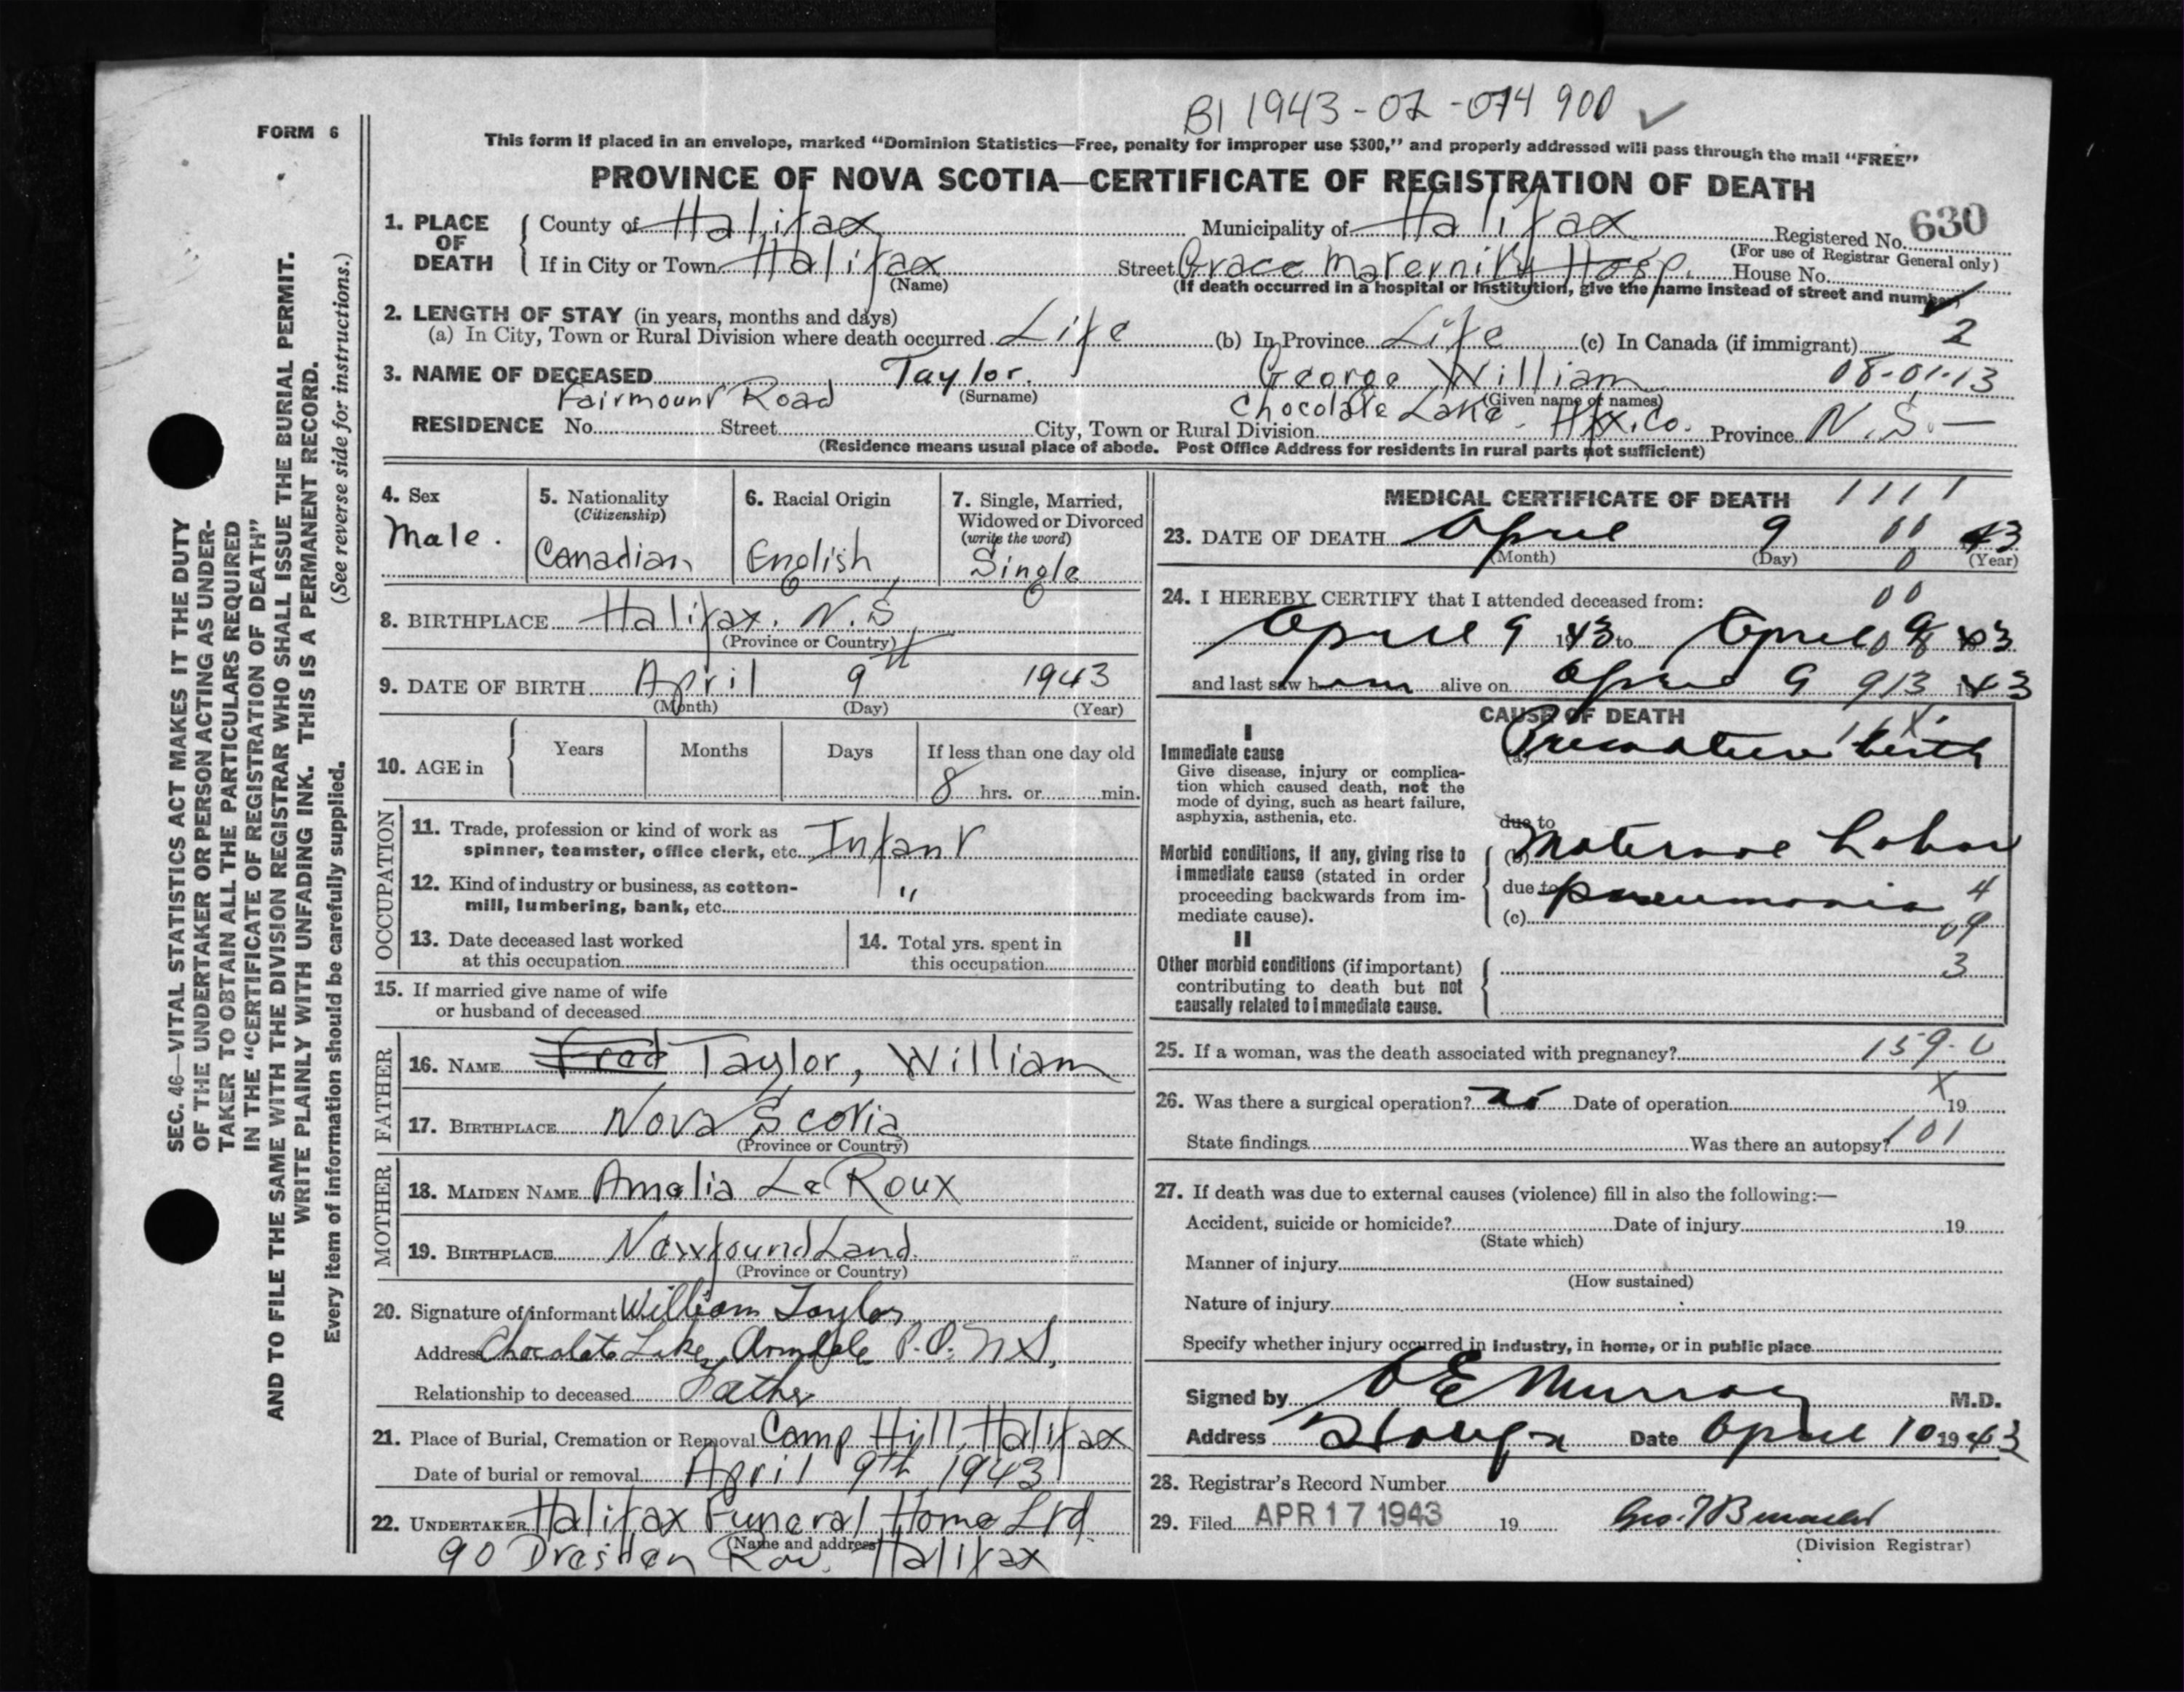 BI 1943-02-074 900 ✓
FORM 6
This form if placed in an envelope, marked "Dominion Statistics—Free, penalty for improper use $300," and properly addressed will pass through the mail "FREE"
PROVINCE OF NOVA SCOTIA—CERTIFICATE OF REGISTRATION OF DEATH
1. PLACE OF DEATH County of Halifax Municipality of Halifax Registered No. 630
(For use of Registrar General only)
If in City or Town Halifax Street Grace Maternity Hosp. House No.
(Name) (If death occurred in a hospital or institution, give the name instead of street and number)
2. LENGTH OF STAY (in years, months and days)
(a) In City, Town or Rural Division where death occurred Life (b) In Province Life (c) In Canada (if immigrant) 2
3. NAME OF DECEASED Taylor. George William 08-01-13
(Surname) (Given name or names)
Fairmount Road Chocolate Lake. Hfx. Co.
RESIDENCE No. Street City, Town or Rural Division Province N.S. —
(Residence means usual place of abode. Post Office Address for residents in rural parts not sufficient)
4. Sex
Male.
5. Nationality
(Citizenship)
Canadian
6. Racial Origin
English
7. Single, Married,
Widowed or Divorced
(write the word)
Single
8. BIRTHPLACE Halifax. N.S.
(Province or Country)
9. DATE OF BIRTH April 9th 1943
(Month) (Day) (Year)
10. AGE in Years Months Days If less than one day old
8 hrs. or min.
OCCUPATION
11. Trade, profession or kind of work as
spinner, teamster, office clerk, etc. Infant
12. Kind of industry or business, as cotton-
mill, lumbering, bank, etc. "
13. Date deceased last worked
at this occupation
14. Total yrs. spent in
this occupation
15. If married give name of wife
or husband of deceased
FATHER
16. NAME Fred Taylor, William
17. BIRTHPLACE Nova Scotia
(Province or Country)
MOTHER
18. MAIDEN NAME Amelia Le Roux
19. BIRTHPLACE NewfoundLand.
(Province or Country)
20. Signature of informant William Taylor
Address Chocolate Lake, Armdale P.O. N.S,
Relationship to deceased Father
21. Place of Burial, Cremation or Removal Camp Hill, Halifax
Date of burial or removal April 9th 1943
22. UNDERTAKER Halifax Funeral Home Ltd.
(Name and address)
90 Dresden Row. Halifax
MEDICAL CERTIFICATE OF DEATH 1111
23. DATE OF DEATH April 9 43
(Month) (Day) (Year)
24. I HEREBY CERTIFY that I attended deceased from:
April 9 1943 to April 9 43
and last saw him alive on April 9 1943
CAUSE OF DEATH
I
Immediate cause
Give disease, injury or complica-
tion which caused death, not the
mode of dying, such as heart failure,
asphyxia, asthenia, etc.
(a) Premature birth
due to
Morbid conditions, if any, giving rise to
immediate cause (stated in order
proceeding backwards from im-
mediate cause).
(b) Maternal Lobar
due to pneumonia 4
(c) 09
II
Other morbid conditions (if important)
contributing to death but not
causally related to immediate cause.
3
25. If a woman, was the death associated with pregnancy? 159-0
26. Was there a surgical operation? no Date of operation X 19
State findings Was there an autopsy? 101
27. If death was due to external causes (violence) fill in also the following:—
Accident, suicide or homicide? Date of injury 19
(State which)
Manner of injury
(How sustained)
Nature of injury
Specify whether injury occurred in industry, in home, or in public place
Signed by Murray M.D.
Address Date April 10 1943
28. Registrar's Record Number
29. Filed APR 17 1943 19
(Division Registrar)
SEC. 46—VITAL STATISTICS ACT MAKES IT THE DUTY
OF THE UNDERTAKER OR PERSON ACTING AS UNDER-
TAKER TO OBTAIN ALL THE PARTICULARS REQUIRED
IN THE "CERTIFICATE OF REGISTRATION OF DEATH"
AND TO FILE THE SAME WITH THE DIVISION REGISTRAR WHO SHALL ISSUE THE BURIAL PERMIT.
WRITE PLAINLY WITH UNFADING INK. THIS IS A PERMANENT RECORD.
Every item of information should be carefully supplied. (See reverse side for instructions.)